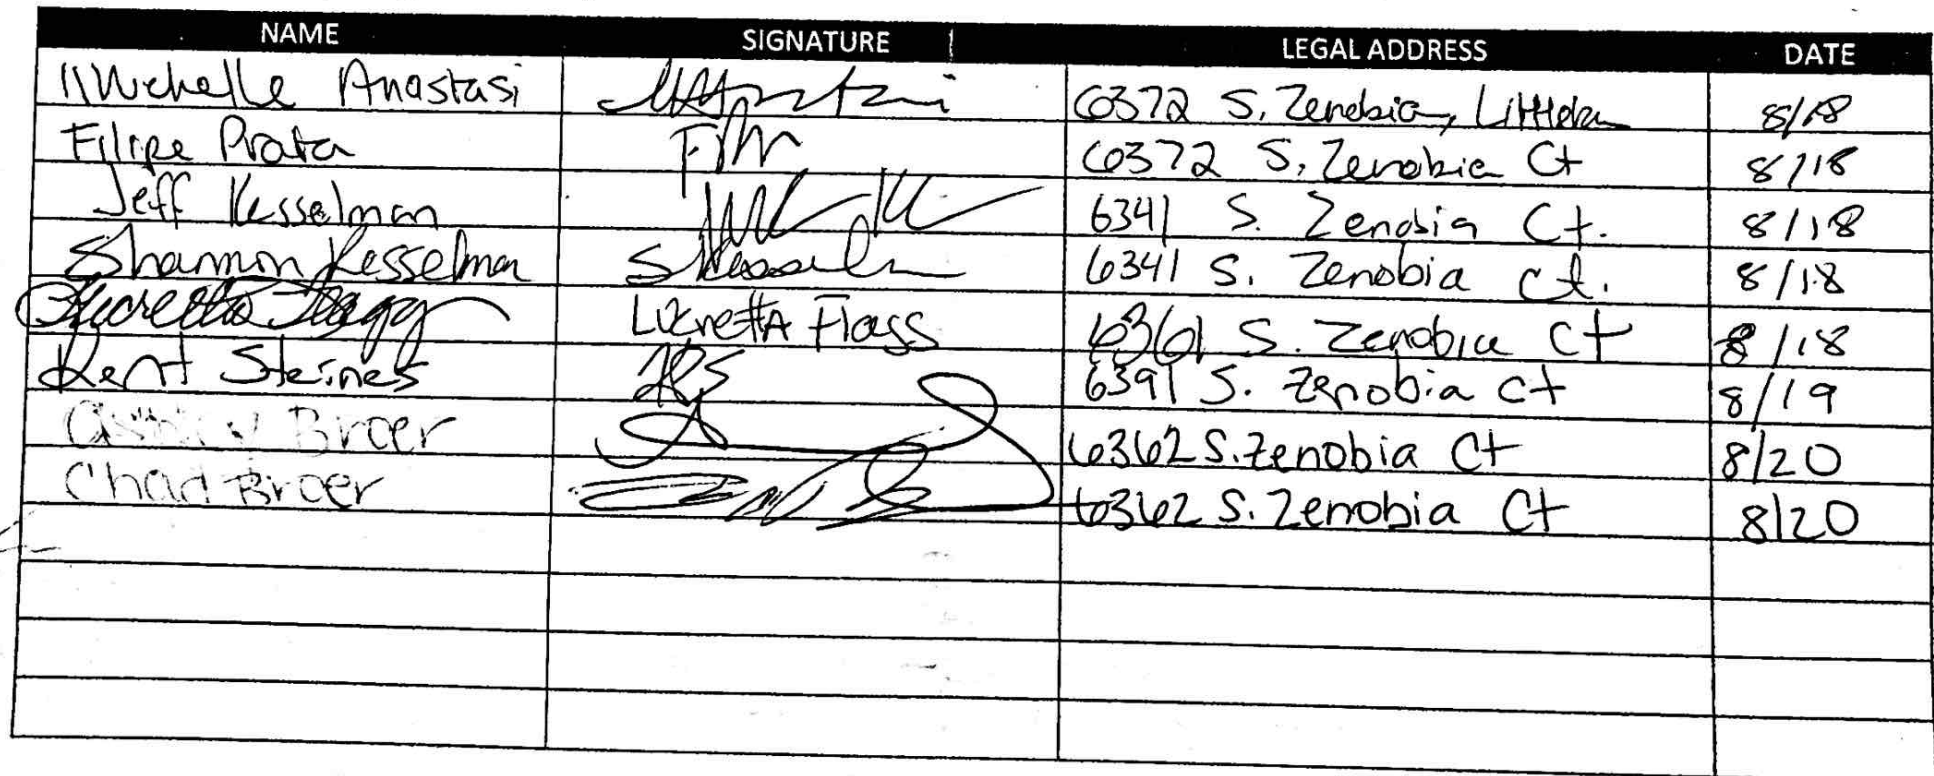 NAME SIGNATURE LEGAL ADDRESS DATE
Michelle Anastasi 6372 S. Zenobia, 8/18
Filipe Prata 6372 S. Zenobia Ct 8/18
Jeff Kesselman 6341 S. Zenobia Ct. 8/18
Shannon Kesselman SKesselm 6341 S. Zenobia Ct. 8/18
Lucretta Flagg Lucretta Flagg 6361 S. Zenobia Ct 8/18
Kent Steines 6391 S. Zenobia Ct 8/19
Broer 6362 S. Zenobia Ct 8/20
Chad Broer 6362 S. Zenobia Ct 8/20